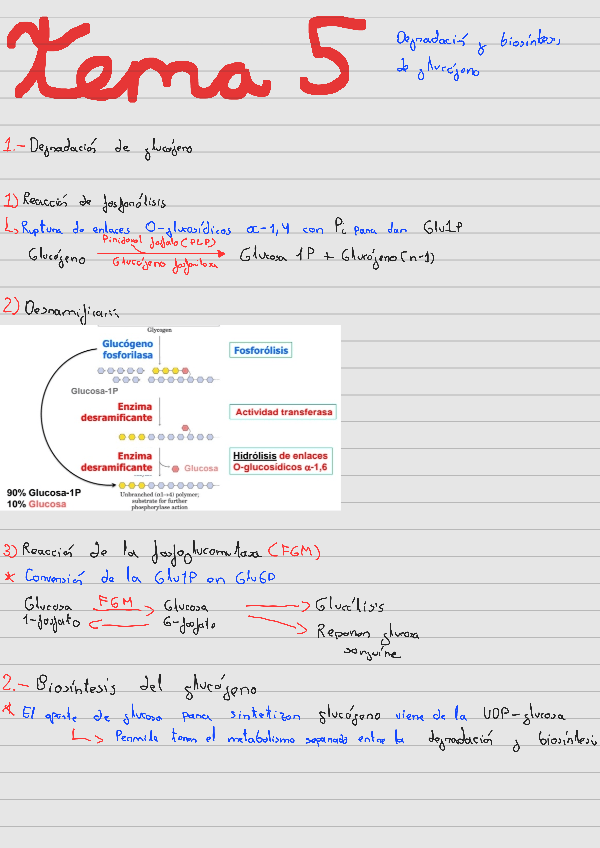 Tema 5
Degradación y biosíntesis
de glucógeno
1.- Degradación de glucógeno
1) Reacción de fosforólisis
↳ Ruptura de enlaces O-glucosídicos α-1,4 con Pi para dar Glu1P
Piridoxal fosfato (PLP)
Glucógeno → Glucosa 1P + Glucógeno (n-1)
Glucógeno fosforilasa
2) Desramificación
Glycogen
Glucógeno
fosforilasa
Fosforólisis
Glucosa-1P
Enzima
desramificante
Actividad transferasa
Enzima
desramificante
Glucosa
Hidrólisis de enlaces
O-glucosídicos α-1,6
90% Glucosa-1P
10% Glucosa
Unbranched (α1→4) polymer;
substrate for further
phosphorylase action
3) Reacción de la fosfoglucomutasa (FGM)
* Conversión de la Glu1P en Glu6P
Glucosa FGM Glucosa → Glucólisis
1-fosfato 6-fosfato
Reponer glucosa
sanguíne
2.- Biosíntesis del glucógeno
* El aporte de glucosa para sintetizar glucógeno viene de la UDP-glucosa
↳ Permite tener el metabolismo separado entre la degradación y biosíntesis